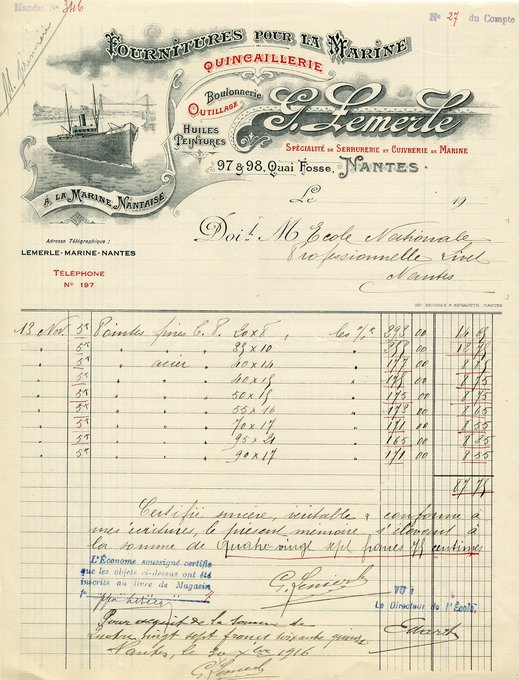 Mandat Nº 346
Nº 27 du Compte
FOURNITURES POUR LA MARINE
QUINCAILLERIE
Boulonnerie
OUTILLAGE
HUILES
PEINTURES
G. Lemerle
SPÉCIALITÉ DE SERRURERIE ET CUIVRERIE DE MARINE
97 & 98, Quai Fosse, NANTES.
À LA MARINE NANTAISE
Le 19
Adresse Télégraphique :
LEMERLE-MARINE-NANTES
TÉLÉPHONE
Nº 197
Doit M Ecole Nationale
Professionnelle Livet
Nantes
13 Nov. 5 Pointes fines C. P. 20 x 8, les % 293 00 14 65
" 5 " " 35 x 10 " 00 12
" 5 " acier 40 x 14 " 177 00 8 85
" 5 " " 40 x 15 " 175 00 8 75
" 5 " " 50 x 15 " 175 00 8 75
" 5 " " 55 x 16 " 173 00 8 65
" 5 " " 70 x 17 " 171 00 8 55
" 5 " " 95 x 21 " 165 00 8 25
" 5 " " 90 x 17 " 171 00 8 55
87 75
Certifié sincère, véritable & conforme à
mes écritures, le présent mémoire s'élevant à
la somme de Quatre vingt sept francs 75 centimes
L'Économe soussigné certifie
que les objets ci-dessus ont été
inscrits au livre de Magasin
G. Lemerle
VU :
Le Directeur de l'École,
Pour acquit de la somme de
Quatre vingt sept francs soixante quinze
Nantes, le 30 Xbre 1916
G. Lemerle